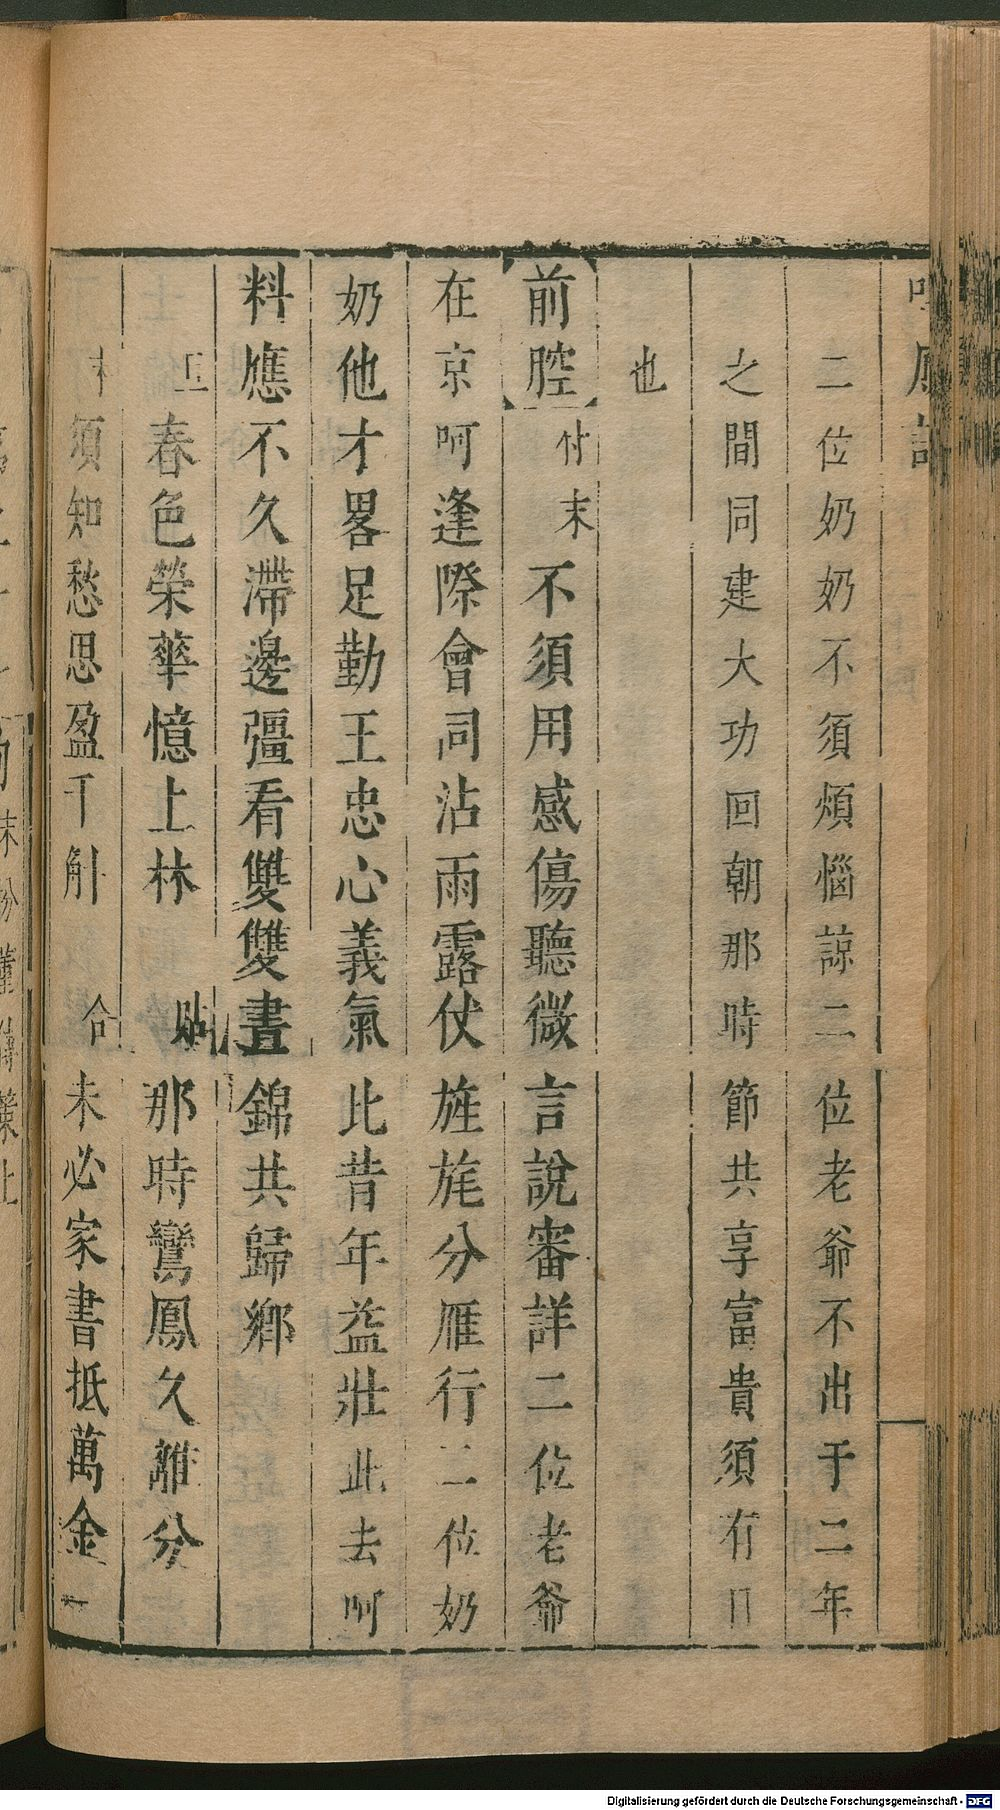 二位奶奶不須煩惱諒二位老爺不出于二年
之間同建大功回朝那時節共享富貴須有日
也
前腔 付末 不須用感傷聽微言說審詳二位老爺
在京呵逢際會同沾雨露仗旌旄分雁行二位奶
奶他才畧足勤王忠心義氣比昔年益壯此去呵
料應不久滯邊彊看雙雙晝錦共歸鄉
春色榮華憶上林 貼 那時鸞鳳久離分
末 須知愁思盈千斛 合 未必家書抵萬金
Digitalisierung gefördert durch die Deutsche Forschungsgemeinschaft - DFG